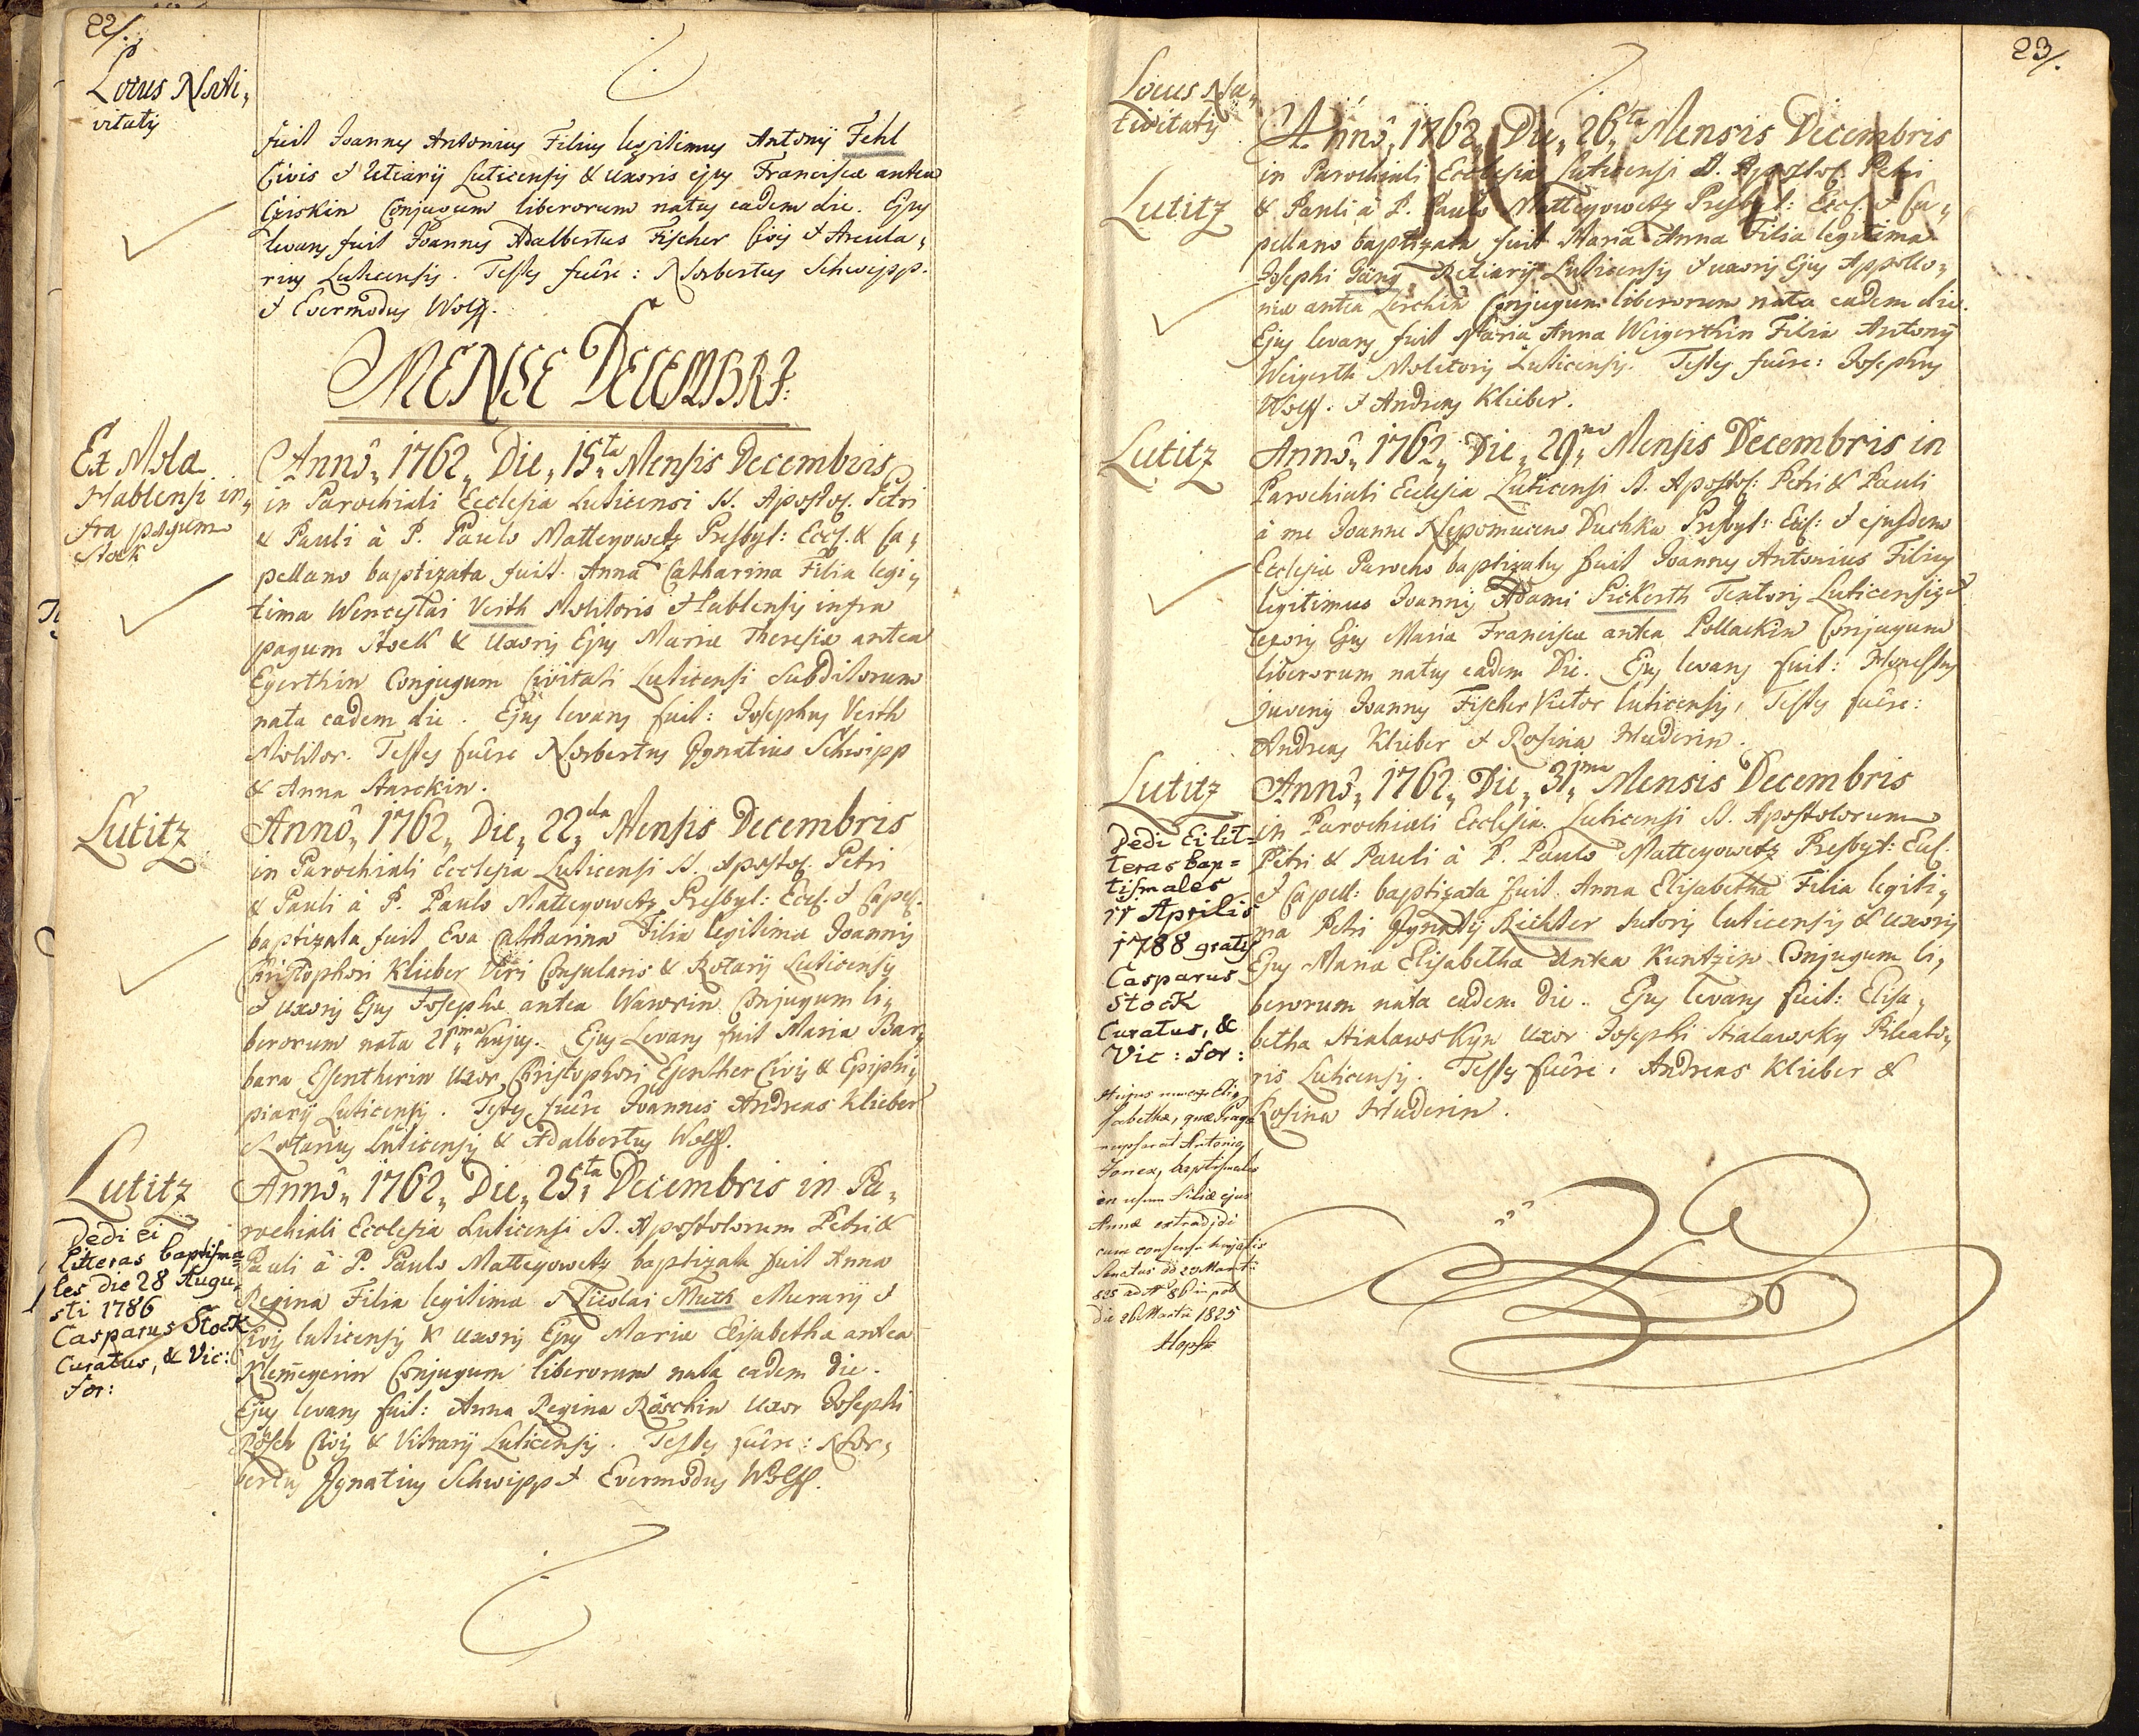 22/.
Locus Nati„
vitatis
fuit Joannes Antonius Filius legitimus Antonij Fehl
Civis & Uxoris ejus Franciscæ antea
Conjugum liberorum natus eadem die. Ejus
levans fuit Joannes Adalbertus Fischer Civis & Arcula„
rius Luticensis. Testes fuêre: Norbertus Schwipp.
& Evermodus Wolff.
MENSE DECEMBRI:
Ex Mola
Hablensi in„
fra pagum
Stock
Annô„ 1762„ Die„ 15„ta Mensis Decembris
in Parochiali Ecclesia Luticensi SS. Apostol. Petri
& Pauli à P. Paulo Matteyowetz Presbyt: Eccl. & Ca„
pellano baptizata fuit Anna Catharina Filia legi„
tima Wenceslai Veith Molitoris Hablensis infra
pagum Stock & Uxoris Ejus Mariæ Theresiæ antea
Egerthin Conjugum Civitati Luticensi Subditorum
nata eadem die. Ejus levans fuit: Josephus Veith
Molitor. Testes fuêre Norbertus Ignatius Schwipp
& Anna Starckin.
Lutitz
Annô„ 1762„ Die„ 22„da Mensis Decembris
in Parochiali Ecclesia Luticensi SS. Apostol. Petri
& Pauli à P. Paulo Matteyowetz Presbyt: Eccl. & Capel.
baptizata fuit Eva Catharina Filia legitima Joannis
Christophori Klieber Viri Consularis & Rotarij Luticensis
& Uxoris Ejus Josephæ antea Wawrin Conjugum li„
berorum nata 21„ma hujus. Ejus Levans fuit Maria Bar„
bara Esentherin Uxor Christophori Esenther Civis & Ephip„
piarij Luticensis. Testes fuêre Joannes Andreas Klieber
Rotarius Luticensis & Adalbertus Wolff.
Lutitz
Dedi ei
Litteras baptisma=
les die 28 Augu=
sti 1786
Casparus Stock
Curatus, & Vic:
for:
Annô„ 1762„ Die„ 25„ta Decembris in Pa„
rochiali Ecclesia Luticensi SS. Apostolorum Petri &
Pauli à P. Paulo Matteyowetz baptizata fuit Anna
Regina Filia legitima Nicolai Muth Murarij &
Civis luticensis & Uxoris Ejus Mariæ Elisabetha antea
Klemeyerin Conjugum liberorum nata eadem die.
Ejus levans fuit: Anna Regina Röschin Uxor Josephi
Rösch Civis & Vitrarij Luticensis. Testes fuêre: Nor„
bertus Ignatius Schwipp & Evermodus Wolff.
23/.
Locus Na„
tivitatis
Lutitz
Annô„ 1762„ Die„ 26„ta Mensis Decembris
in Parochiali Ecclesia Luticensi SS. Apostol. Petri
& Pauli à P. Paulo Matteyowetz Presbyt: Eccl. & Ca„
pellano baptizata fuit Maria Anna Filia legitima
Josephi Luticensis & uxoris Ejus Appollo„
niæ antea Lerchin Conjugum liberorum nata eadem die.
Ejus levans fuit Maria Anna Weigerthin Filia Antonij
Weigerth Molitoris Luticensis. Testes fuêre: Josephus
Wolff. & Andreas Klieber.
Lutitz
Annô„ 1762„ Die„ 29„na Mensis Decembris in
Parochiali Ecclesia Luticensi SS. Apostol: Petri & Pauli
à me Joanne Nepomuceno Duchka Presbyt: Eccl: & ejusdem
Ecclesiæ Parocho baptizatus fuit Joannes Antonius Filius
legitimus Joannis Adami Sickerth Textoris Luticensis &
Uxoris Ejus Maria Francisca antea Pollackin Conjugum
liberorum natus eadem Die. Ejus levans fuit: Honestus
juvenis Joannes Fischer Vietor luticensis, Testes fuêre:
Andreas Klieber & Rosina Huderin.
Lutitz
Dedi Ei lit=
teras bap=
tismales
11 Aprilis
1788 gratis
Casparus
Stock
Curatus, &
Vic: for:
Annô„ 1762„ Die„ 31„ma Mensis Decembris
in Parochiali Ecclesia Luticensi SS. Apostolorum
Petri & Pauli à P. Paulo Matteyowetz Presbyt: Eccl.
& Capell: baptizata fuit Anna Elisabetha Filia legiti„
ma Petri Ignatij Richter Sutoris luticensis & uxoris
Ejus Maria Elisabetha Antea Kuntzin Conjugum li„
berorum nata eadem die. Ejus levans fuit: Elisa„
betha Hialawskyn Uxor Josephi Hialawsky Pileato„
ris Luticensis. Testes fuêre: Andreas Klieber &
Rosina Huderin.
Hujus Eli„
sabethæ, quæ Pragæ
nupserat Antonio
baptismales
in usum Filiæ ejus
Annæ extradidi
cum consensu
Senatus
die 26 Martii 1825